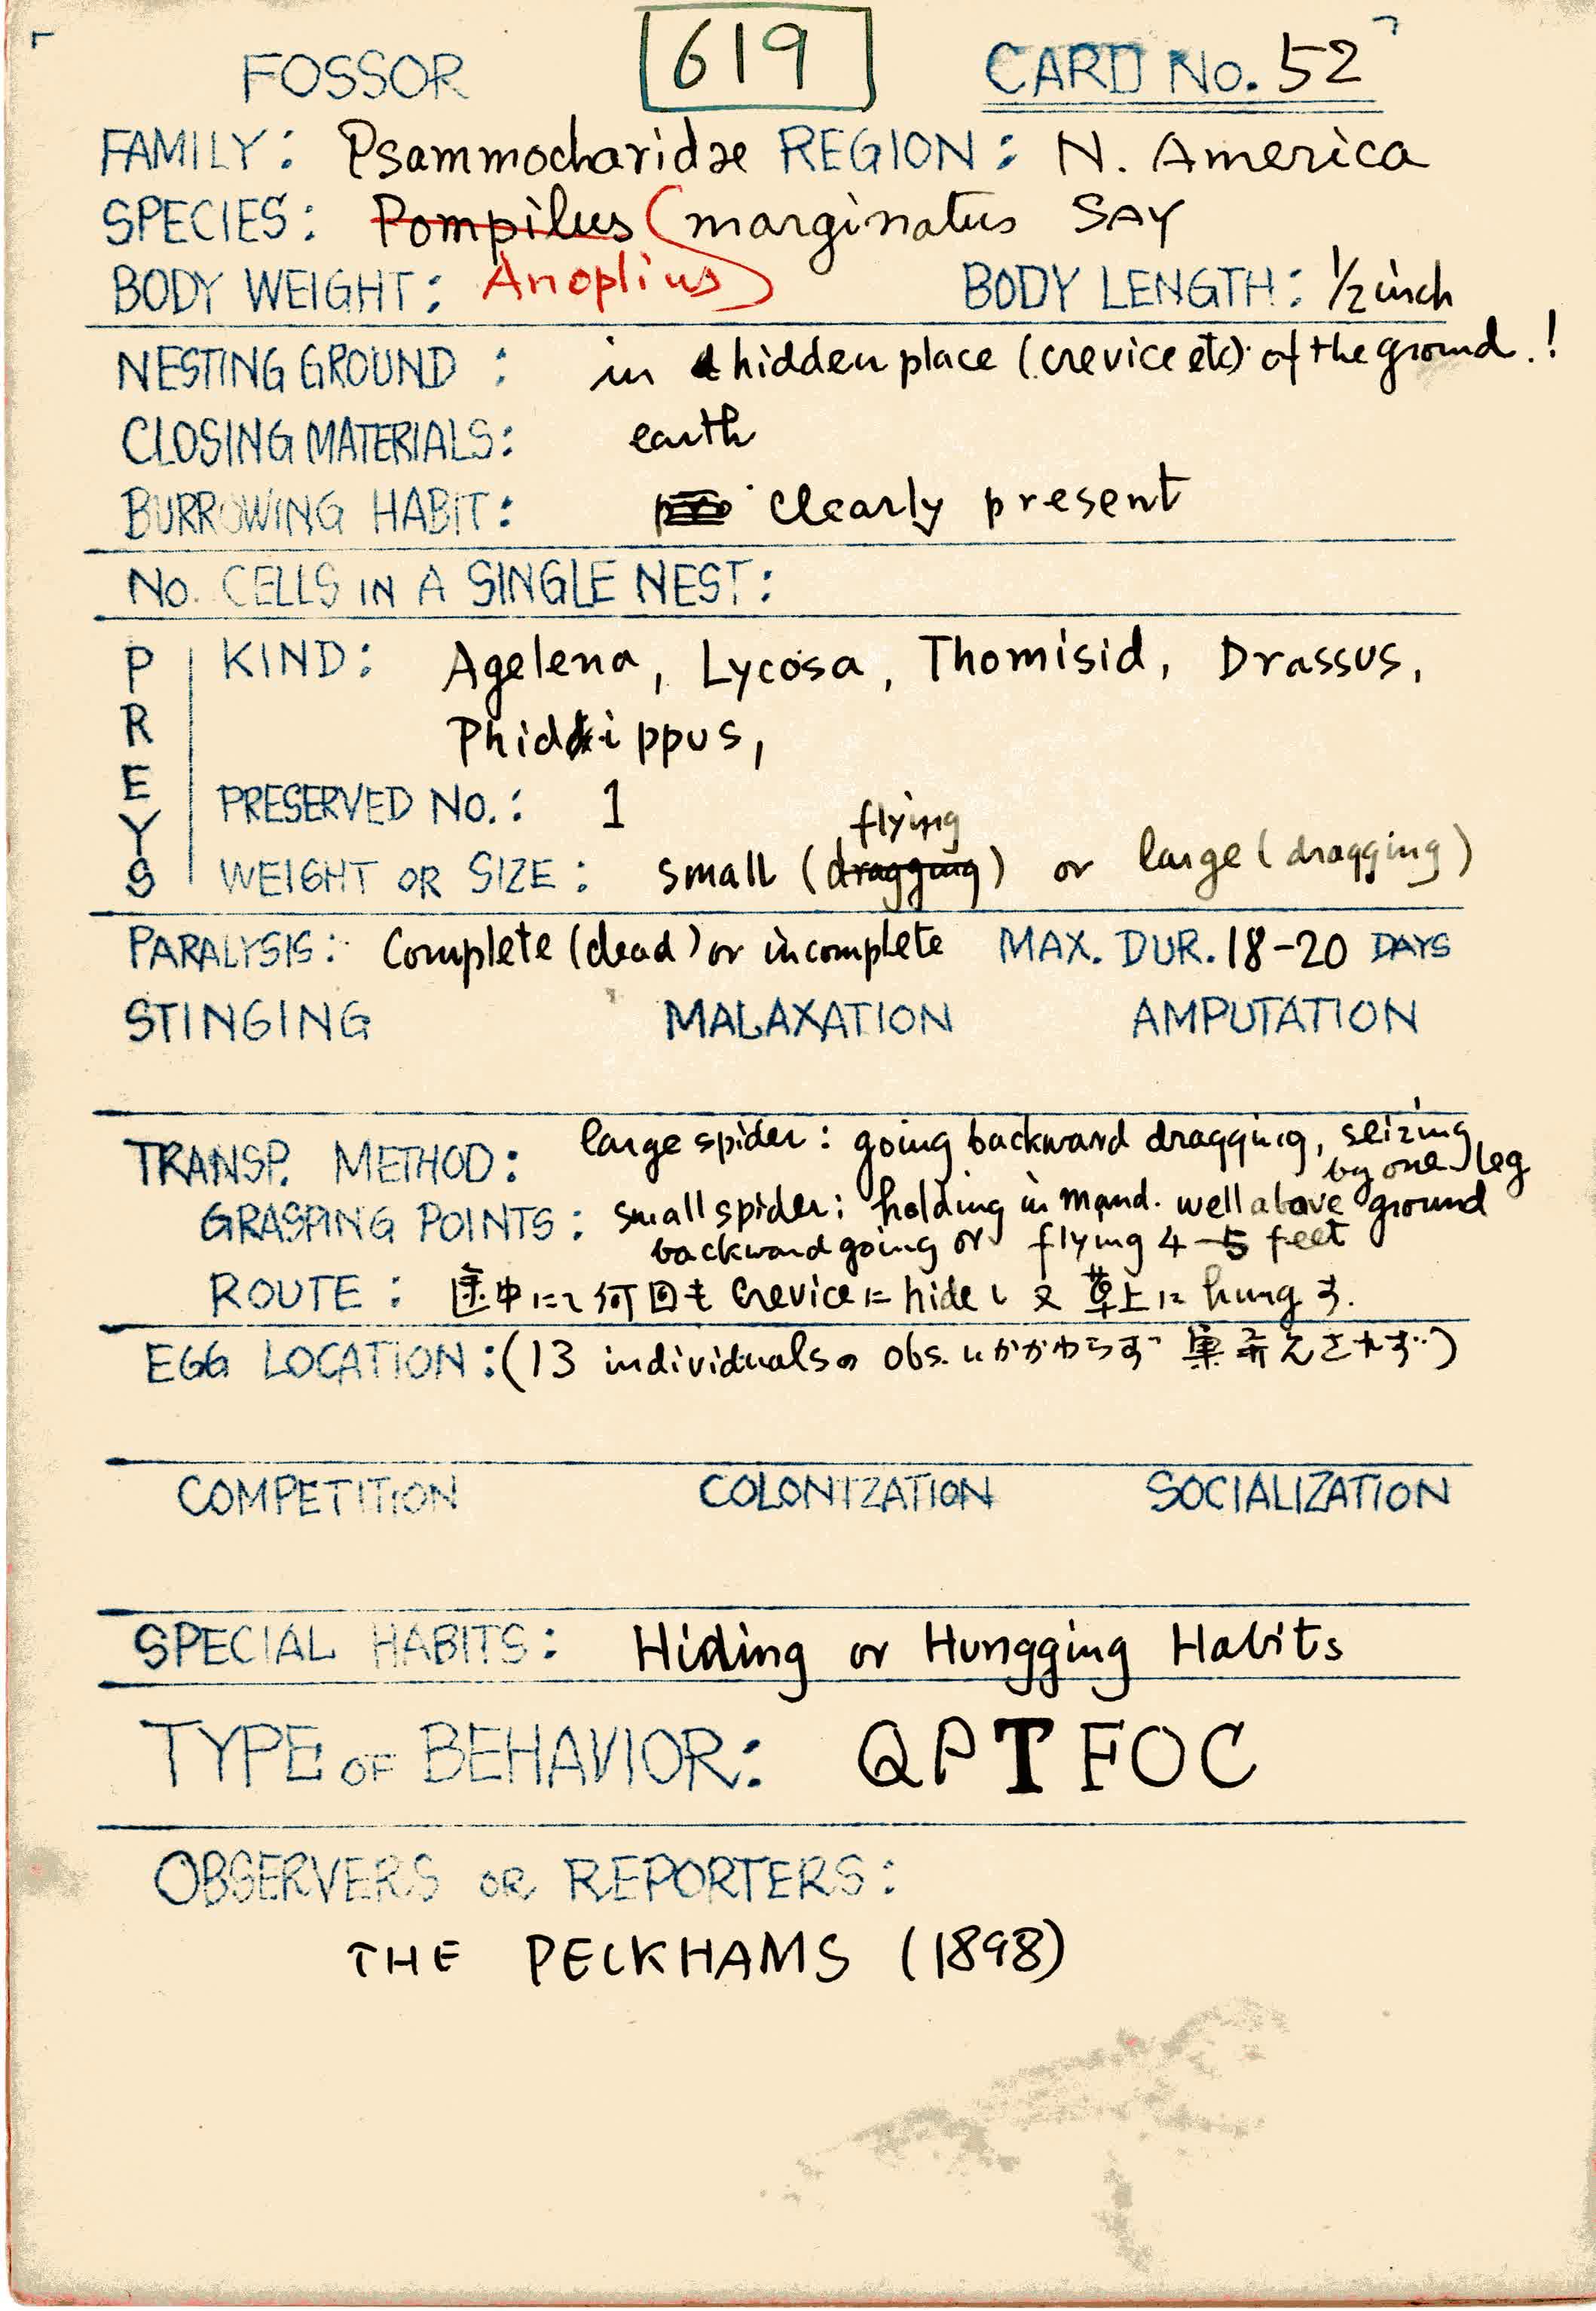 FOSSOR 619 CARD No. 52
FAMILY: Psammocharidae REGION: N. America
SPECIES: Pompilus marginatus SAY
BODY WEIGHT: Anoplius BODY LENGTH: 1/2 inch
NESTING GROUND: in hidden place (crevice etc). of the ground.!
CLOSING MATERIALS: earth
BURROWING HABIT: clearly present
No. CELLS IN A SINGLE NEST:
PREYS
KIND: Agelena, Lycosa, Thomisid, Drassus,
Phidippus,
PRESERVED No.: 1
flying
WEIGHT OR SIZE: small (dragging) or large (dragging)
PARALYSIS: Complete (dead) or incomplete MAX. DUR. 18-20 DAYS
STINGING MALAXATION AMPUTATION
TRANSP. METHOD: large spider: going backward dragging, seizing
by one leg
GRASPING POINTS: small spider: holding in mand. well above ground
backward going or flying 4-5 feet
ROUTE: 途中にて何回も creviceにhideし又草上にhungす.
EGG LOCATION: (13 individualsの obs. にかかわらず 巣 えされず)
COMPETITION COLONIZATION SOCIALIZATION
SPECIAL HABITS: Hiding or Hungging Habits
TYPE OF BEHAVIOR: QPTFOC
OBSERVERS OR REPORTERS:
THE PECKHAMS (1898)